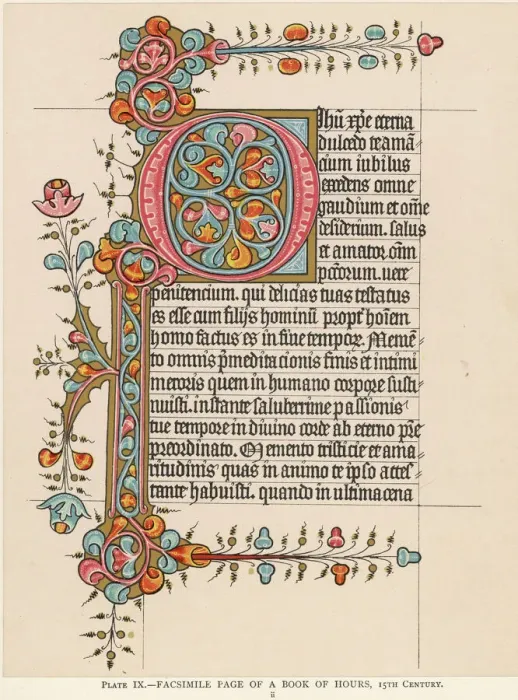 Jhū xp̄e eterna
dulcedo te amā
cium iubilus
excedens omne
gaudium et om̄e
desiderium. salus
et amator. om̄
pc̄corum. uere
penitencium. qui delicias tuas testatus
es esse cum filijs hominū propt' hoīem
homo factus es in fine tempoꝝ. Memē
to omnis p̄meditacionis finis et intimi
meroris quem in humano corpore susti
nuisti. instante saluberrime passionis
tue tempore in diuino corde ab eterno pr̄e
preordinato. Memento tristicie et ama
ritudinis quas in animo te ipso attes
tante habuisti. quando in ultima cena
PLATE IX.—FACSIMILE PAGE OF A BOOK OF HOURS, 15TH CENTURY.
ii